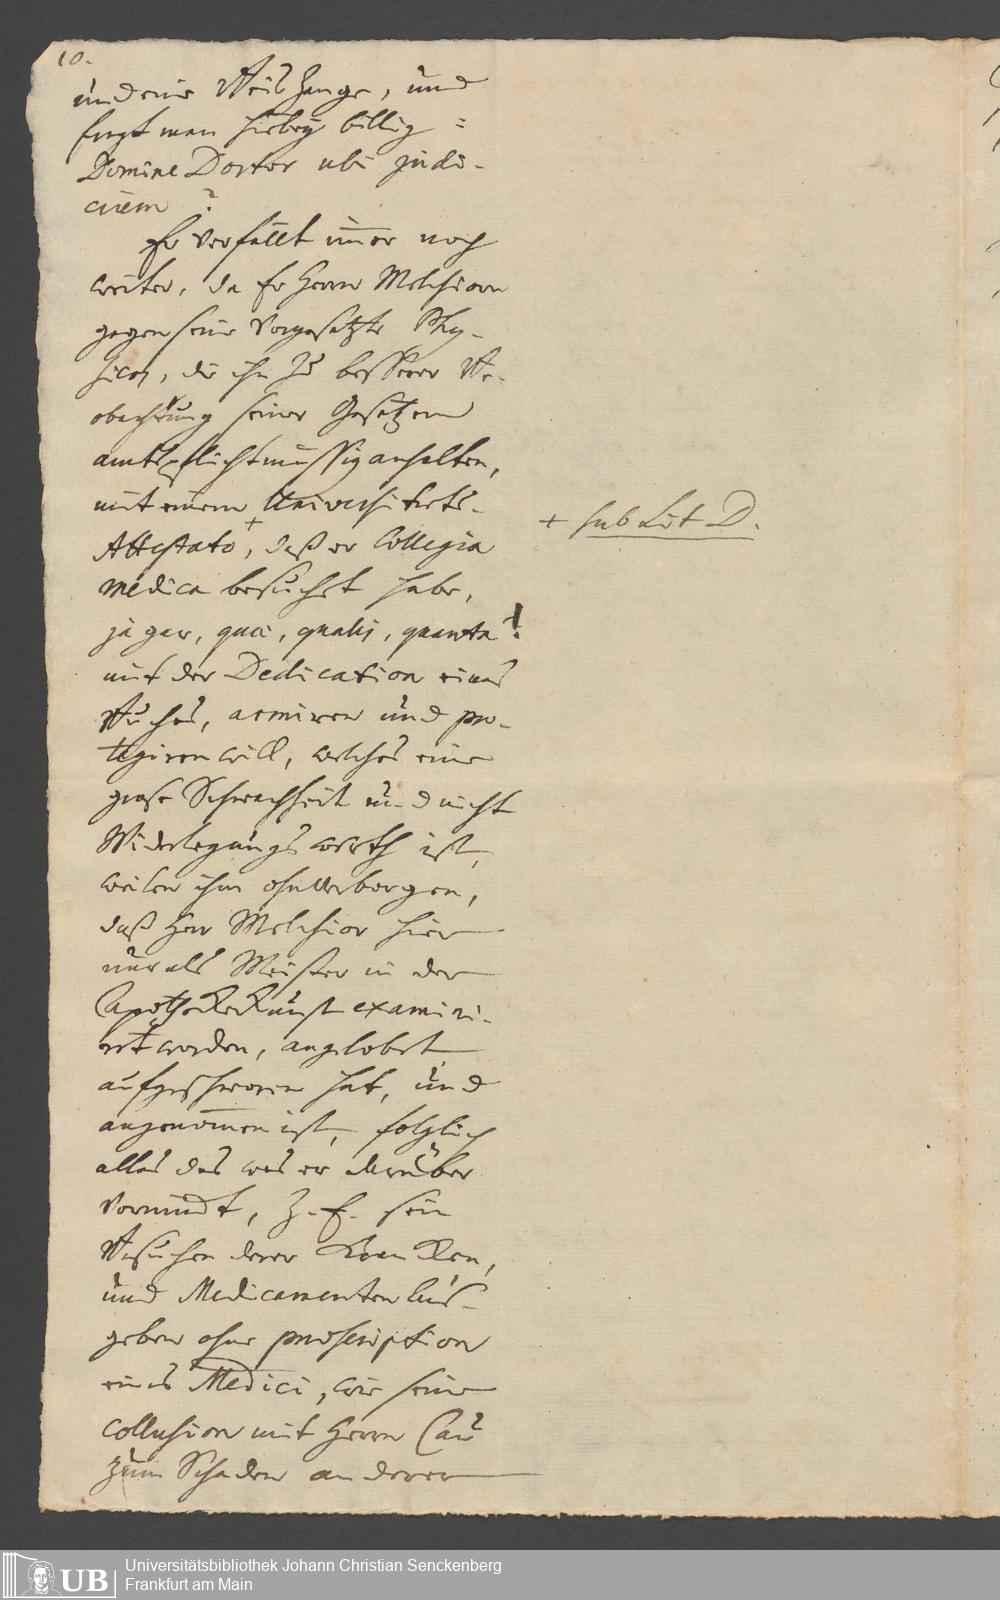 10.
und eine Beißzange, und
fragt man hiebey billig:
Domine Doctor ubi judi-
cium?
Er verfällt immer noch
weiter, da Er Herrn Melchiorn
gegen seine Vorgesetzte Phy-
sicos, die ihn zu besserer Be-
obachtung seiner Gesetzen
amtspflichtmässig anhalten,
mit einem Universitaets-
Attestato +, daß er Collegia
medica besucht habe,
ja gar, quae, qualis, quanta!
mit der Dedication eines
Buches, armiren und pro-
tegiren will, welches eine
grose Schwachheit und nicht
Widerlegungs werth ist,
weilen ihm ohnverborgen,
daß Herr Melchior hier
nur als Meister in der
Apotheckerkunst examini-
ret worden, angelobet
aufgeschworen hat, und
angenommen ist, folglich
alles das was er darüber
vornimmt, z. E. sein
Besuchen derer Krancken,
und Medicamenten aus-
geben ohne praescription
eines Medici, wie seine
collusion mit Herrn Cau
zum Schaden anderer
+ sub Lit D.
UB
Universitätsbibliothek Johann Christian Senckenberg
Frankfurt am Main